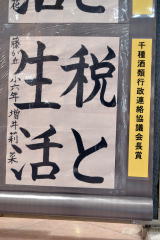 千種酒類行政連絡協議会長賞
税と
生活
藤が丘小六年 増井莉菜